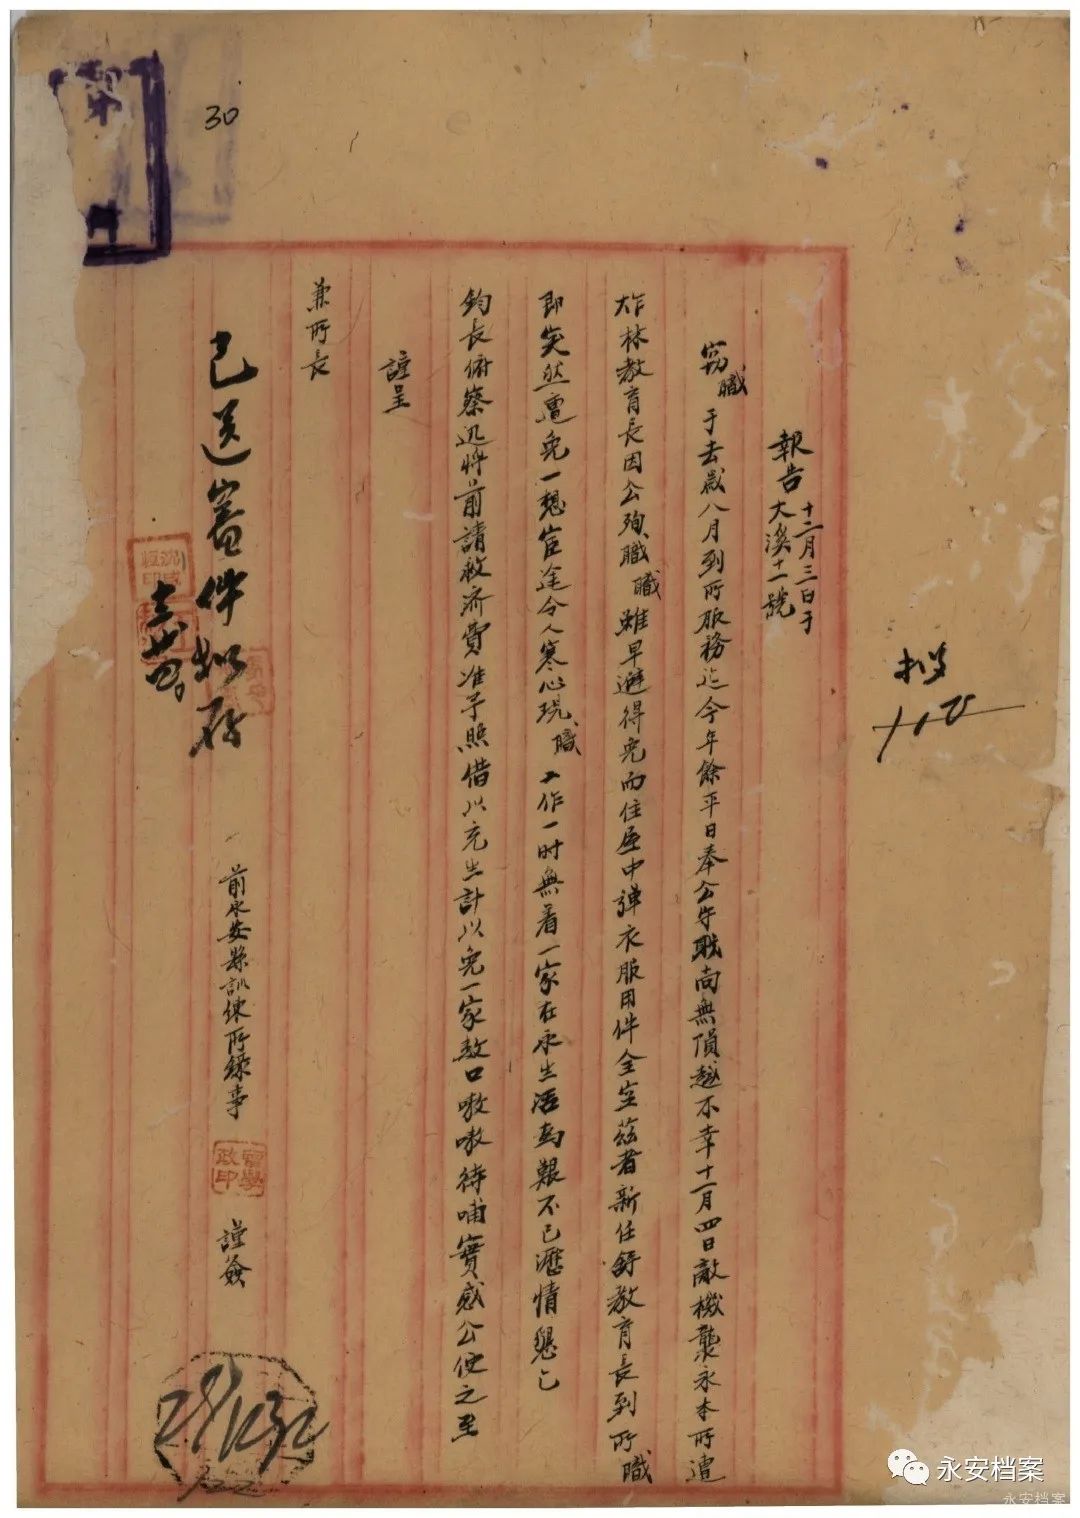 報告 十二月三日于
大溪十一號
竊職于去歲八月到所服務迄今年餘平日奉公守職尚無隕越不幸十一月四日敵機襲永本所遭
炸林教育長因公殉職職雖早避得免而住屋中彈衣服用件全空茲者新任舒教育長到所職
即突然遭免一想宦途令人寒心現職工作一时無着一家在永生活為艱不已瀝情懇乞
鈞長俯察迅將前請救濟費准予照借以充生計以免一家数口嗷嗷待哺實感公便之至
謹呈
兼所長
前永安縣訓練所錄事
曾學政印
謹簽
已送審件拟存
30
永安档案
永安档案